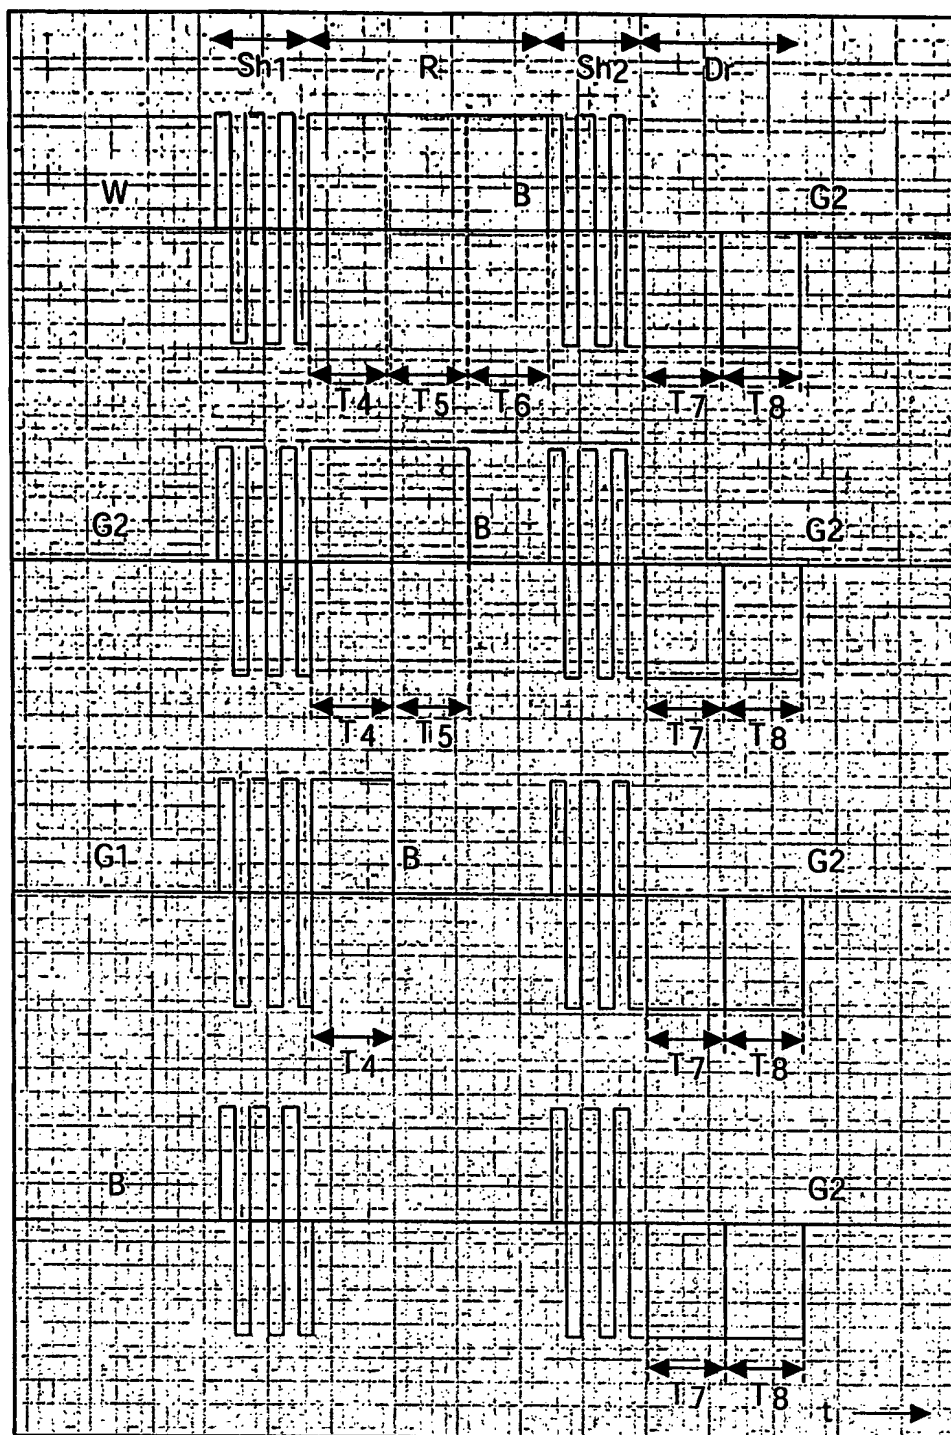 Sh1 R Sh2 Dr
W B G2
T4 T5 T6 T7 T8
G2 B G2
T4 T5 T7 T8
G1 B G2
T4 T7 T8
B G2
T7 T8
t